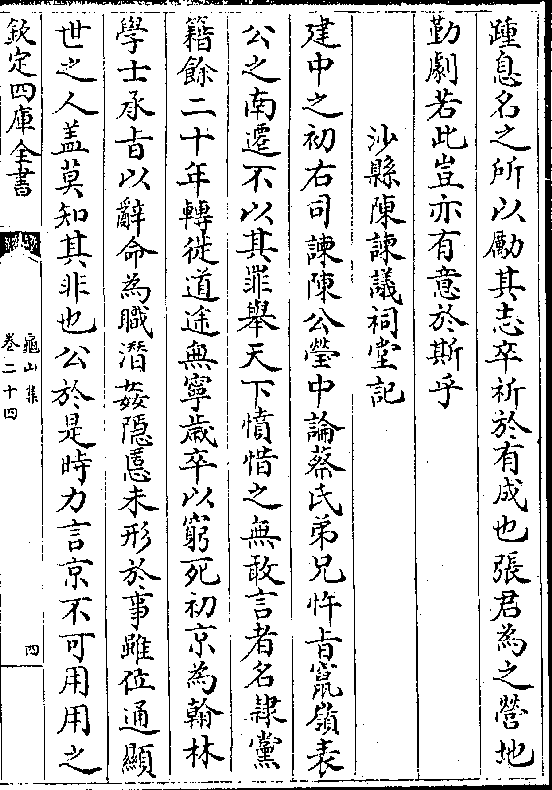 踵息名之所以勵其志卒祈於有成也張君為之營地
勤劇若此豈亦有意於斯乎
沙縣陳諫議祠堂記
建中之初右司諫陳公瑩中論蔡氏弟兄忤旨竄嶺表
公之南遷不以其罪舉天下憤惜之無敢言者名隸黨
籍餘二十年轉徙道途無寧歳卒以窮死初京為翰林
學士承旨以辭命為職潛姦隠慝未形於事雖位通顯
世之人盖莫知其非也公於是時力言京不可用用之
欽定四庫全書
龜山集
卷二十四
四